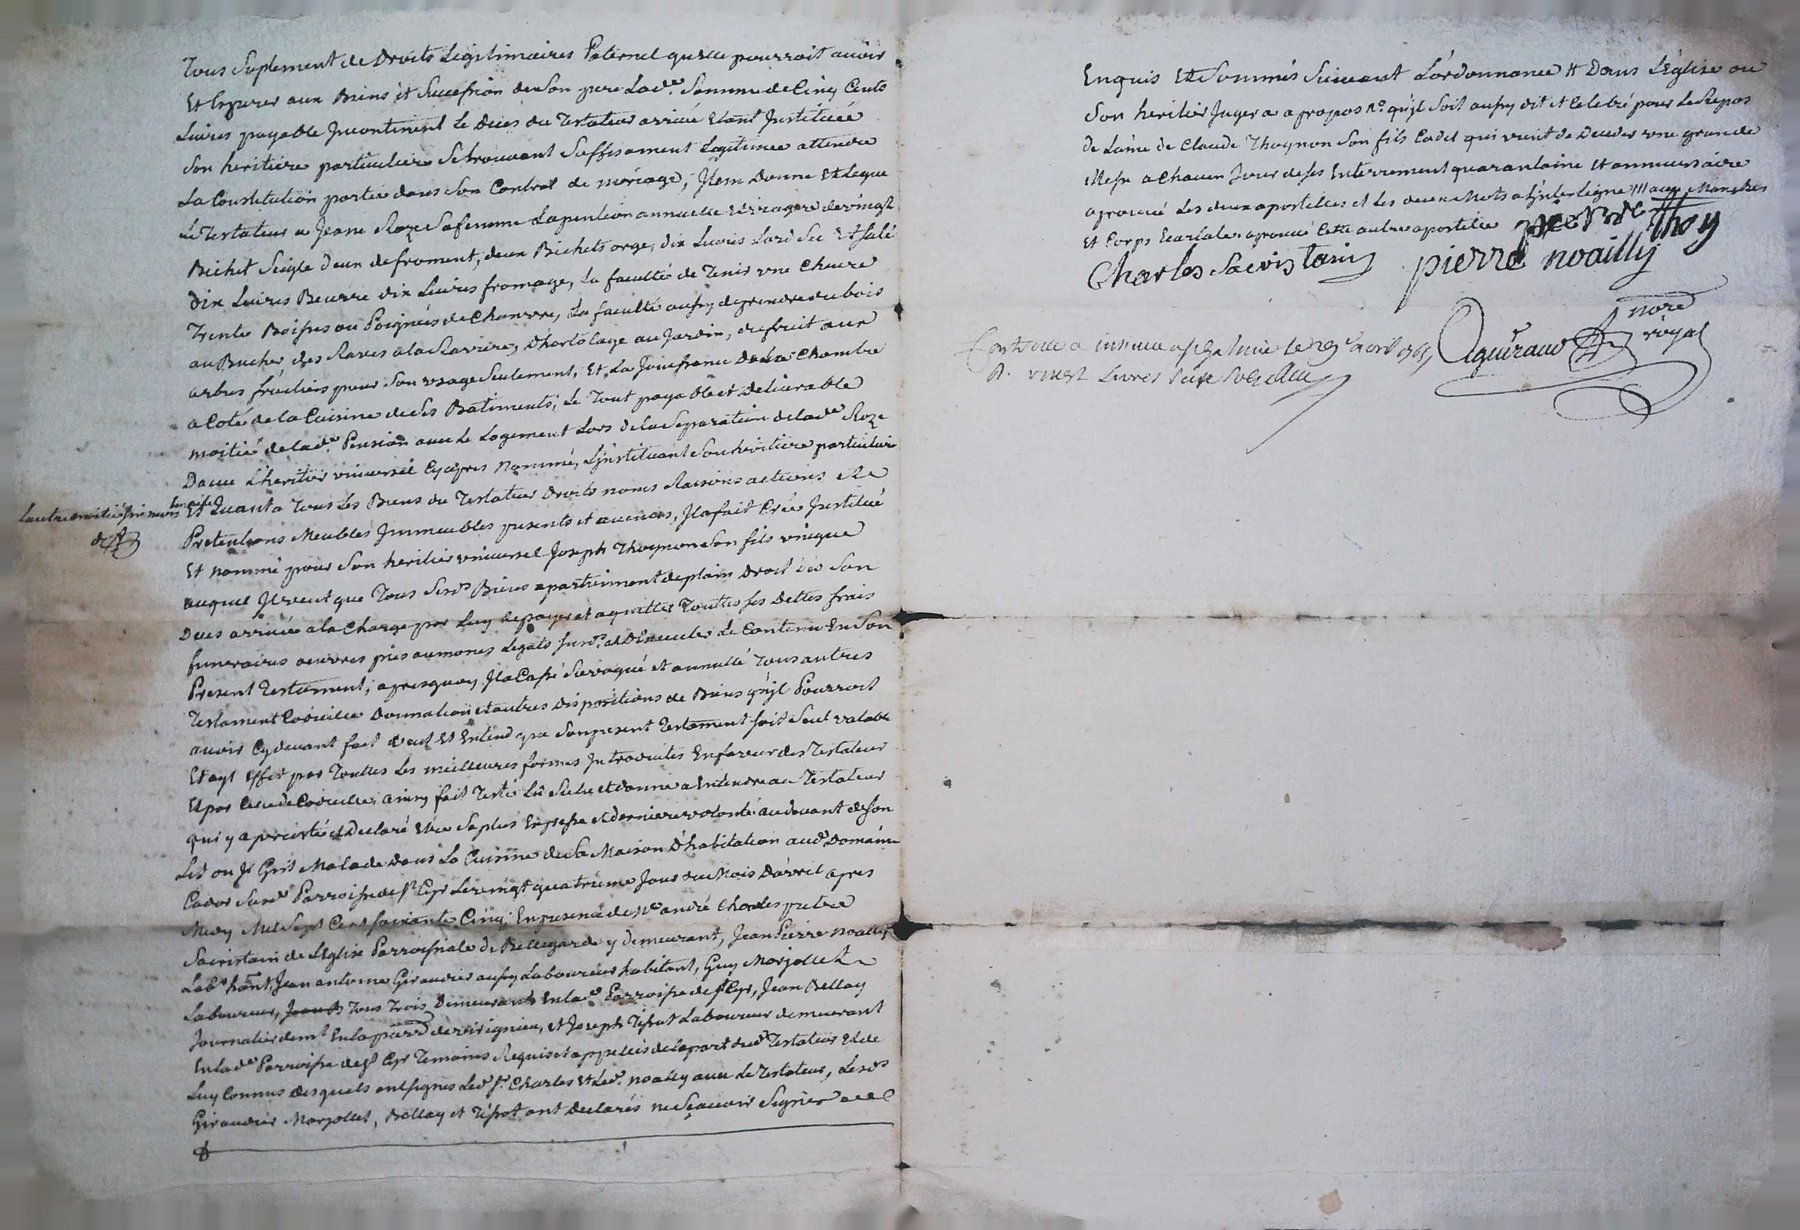 Tous suplement de Droits Legitimaires Paternel quelle pourroit avoir
Et Esperer aux Biens et Succession de Son pere Lad.e Somme de Cinq Cents
Livres payable Incontinent le Deces du Testateur arrivé Et ant Instituée
Son heritiere particuliere Se trouvant Suffisament Legitimée attendu
La Constitution portée dans Son Contrat de mariage; Item Donne Et Legue
Le Testateur a Jeane Roze Sa femme La pention annuelle et viagere de vingt
Bichet Seigle Deux de froment, deux Bichets orge, dix Livres Lard Sec Et Salé
Dix Livres Beurre dix Livres fromage, La faculté de Tenir une Chevre
Trente Boises ou Poignées de Chanvre, La faculté aussy de prendre du bois
au Bucher des Raves a la Raviere, D'hortolage au Jardin, du fruit aux
arbres fruitiers pour Son usage Seulement, Et La Jouissance De La Chambre
a Coté de la Cuisine de Ses Batiments; Le Tout payable et Delivrable
moitié de lad.e Pension avec Le Logement Lors de la Separation de lad.e Roze
Davec L'heritier universel Cy apres Nommé, L'instituant Son heritiere particuliere
Lautre moitié six mois apres
Et Quant a Tous Les Biens du Testateur Droits noms Raisons actions Et
Pretentions Meubles Immeubles presents et avenirs, Il a fait Créé Institué
Et nommé pour Son heritier universel Joseph Thoynon Son fils unique
auquel Il veut que Tous Sesd.s Biens apartiennent de plain Droit des Son
Deces arrivée a la Charge par Luy de payer et aquitter Touttes Ses Dettes frais
funeraires oeuvres pies aumones Legats Susd.s et D'Executer Le Contenu En Son
Present Testament; apres quoy Il a Cassé Revoqué et annullé Tous autres
Testament Codicille Donnation et autres Dispositions de Biens qu'jl Pourroit
avoir Cy devant fait Veut Et Entend que Son present Testament Soit Seul valable
Et ayt Effet par Touttes Les meilleures formes Introduites En faveur des Testateur
Et par Celle de Codicille; ainsy fait Testé Lû Relu et donné a Entendre au Testateur
qui y a percisté et Declaré Etre Sa plus Expresse et derniere volonté au devant de Son
Lit ou Jl Git Malade dans La Cuisine de Sa Maison D'habitation aud.t Domaine
Cador Susd.t Parroisse de S.t Cyr Le vingt quatrieme Jour du Mois D'avril apres
Midy Mil Sept Cent Soixante Cinq; En presence de S.r andré Charles pretre
Sacristain de L'Eglise Parroissiale de Bellegarde y demeurant, Jean Pierre noailly
Lab.r hânt, Jean antoine Giraudier aussy Laboureur habitant, Guy Marjollet
Laboureur, Tous Trois Demeurants En lad.e Parroisse de S.t Cyr, Jean Bellay
Journalier demt En la parr.se de virignieu, et Joseph Tissot Laboureur demeurant
En lad.e Parroisse de S.t Cyr Temoins Requis et appellés de la part dud.t Testateur Et de
Luy Connus desquels ont signes Led.t S.r Charles Et Led.t noailly avec Le Testateur, Lesd.s
Giraudier Marjollet, Bellay et Tissot ont declarés ne Sçavoir Signer de ce
Enquis Et Sommés Suivant L'ordonnance # Dans L'Eglise ou
Son heritier Jugera a propos N.a qu'jl Soit aussy dit et Celebré pour Le Repos
de L'ame de Claude Thoynon Son fils Cadet qui vient de Deceder une grande
Messe a Chacun Jour de Ses Enterrement quarantaine Et anniversaire
aprouvé Les deux apostilles et Les deux Mots a L'Interligne
aprouvé Cette autre apostille
Thoy
Charles Sacristain
pierre noailly
Giraud
no.re royal
avril 1765
R. vingt Livres